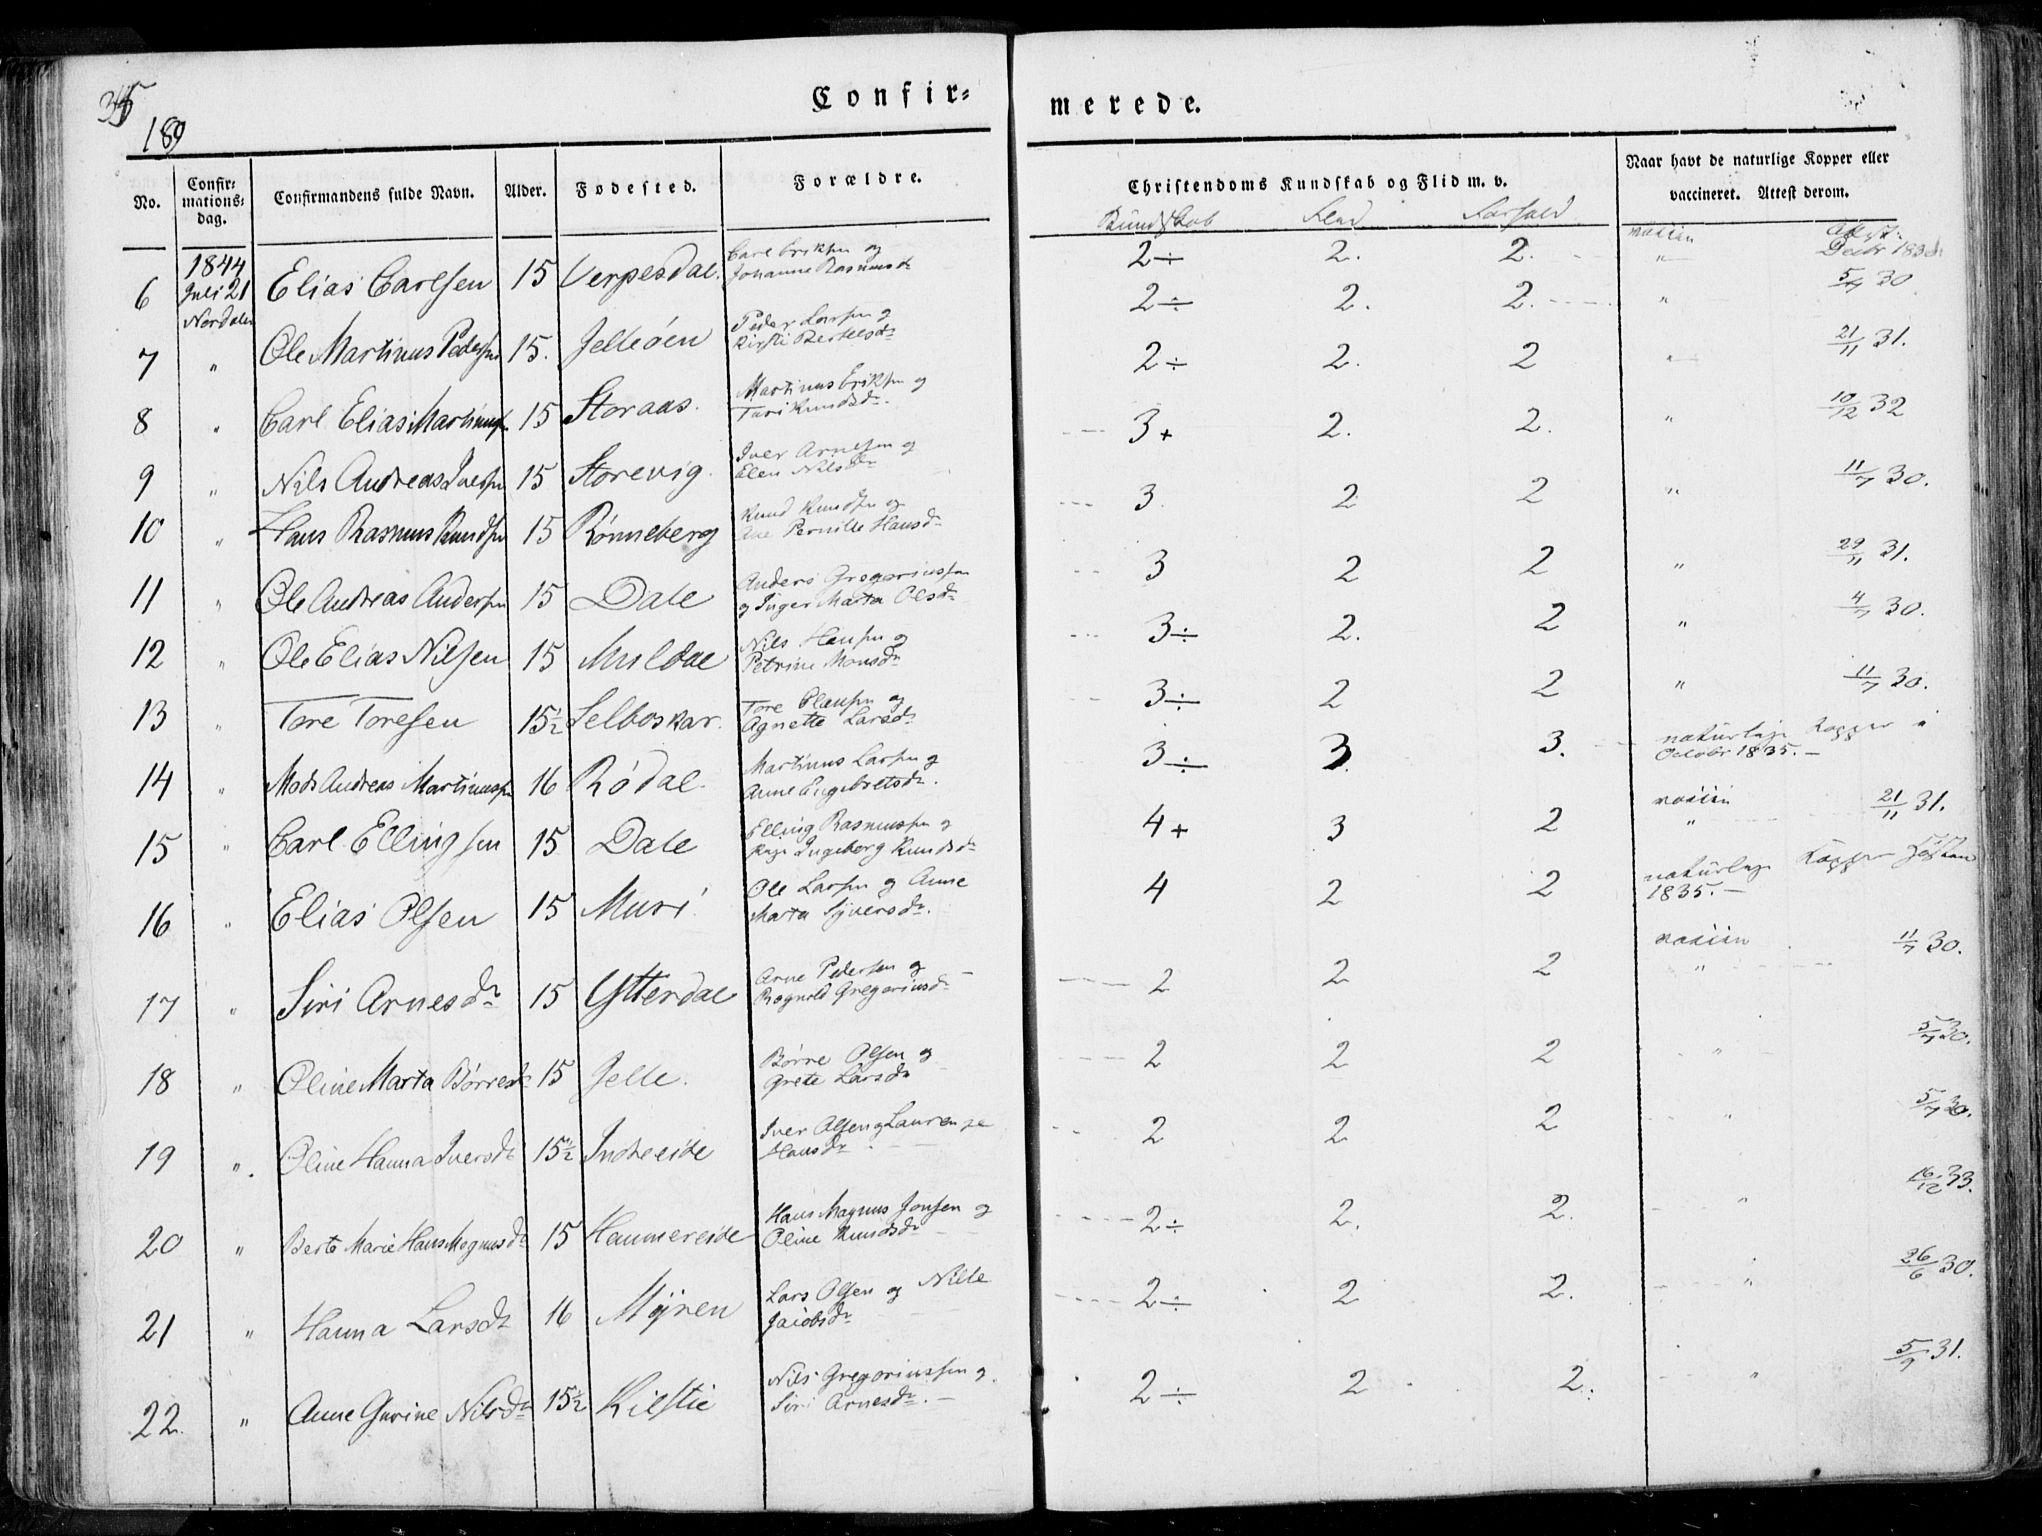 189
Confir=
merede.
No.
Confir=
mations=
dag.
Confirmandens fulde Navn.
Alder.
Fødested.
Forældre.
Christendoms Kundskab og Flid m. v.
Naar havt de naturlige Kopper eller
vaccineret. Attest derom.
Kundskab Flid Forhold
6 1844 Juli 21 Nordalen Elias Carlsen 15 Verpesdal. Carl Eriksen og
Johanne Rasmusdr 2÷ 2. 2.
7 " Ole Martinus Pedersen 15. Jelleøen Peder Larsen og
Kirsti Bertelsdr 2÷ 2. 2. " 5/7 30
8 " Carl Elias Martinusen 15 Storaas. Martinus Eriksen og
Kundsdr. 2÷ 2. 2 " 21/11 31.
9 " Nils Andreas Iversen 15 Storevig. Iver Arnesen og
Elen Nilsdr 3+ 2. 2. " 10/12 32
10 " Hans Rasmus Kundsen 15 Rønneberg Knud Kundsen og
Ane Pernille Hansdr 3. 2 2 " 11/7 30.
11 " Ole Andreas Andersen 15 Dale Anders Gregoriussen
og Inger Marta Olsdr 3 2 2 " 29/11 31.
12 " Ole Elias Nilsen 15 Muldal Nils Hansen og
Petrine Monsdr 3÷ 2. 2 " 4/7 30.
13 " Tore Toresen 15½ Selboskar. Tore Clausen og
Agnette Larsdr 3÷ 2 2 " 11/7 30.
14 " Mads Andreas Martinussen 16 Rødal. Martinus Larsen og
Anne Engebretsdr. 3÷ 3. 3. naturlige Kopper i
October 1835.—
15 " Carl Ellingsen 15 Dale Elling Rasmussen og
Ingeborg Kundsdr 4+ 3 2 " 21/11 31.
16 " Elias Olsen 15 Muri Ole Larsen og Anne
Marta Syversdr. 4 2 2 naturlige Kopper
1835.—
17 " Siri Arnesdr 15 Ytterdal Arne Pedersen og
Ragnald Gregoriusdr 2 2 2 " 11/7 30.
18 " Oline Marta Børresdr 15 Jelle. Børre Olsen og
Grete Larsdr 2 2 2 " 5/7 30.
19 " Oline Hanna Iversdr 15½ Indreeide Iver Olsen og Laurense
Hansdr 2 2 2 " 5/7 30.
20 " Berte Marie Hans Magnusdr 15 Hammereide Hans Magnus Jonsen og
Oline Kundsdr 2÷ 2. 2. " 16/12 33.
21 " Hanna Larsdr 16 Myren Lars Olsen og Nille
Jacobsdr 2÷ 2 2. " 26/6 30.
22. " Anne Gurine Nilsdr 15½ Kilstie Nils Gregoriussen og
Siri Arnesdr.— 2÷ 2 2. " 5/9 31.